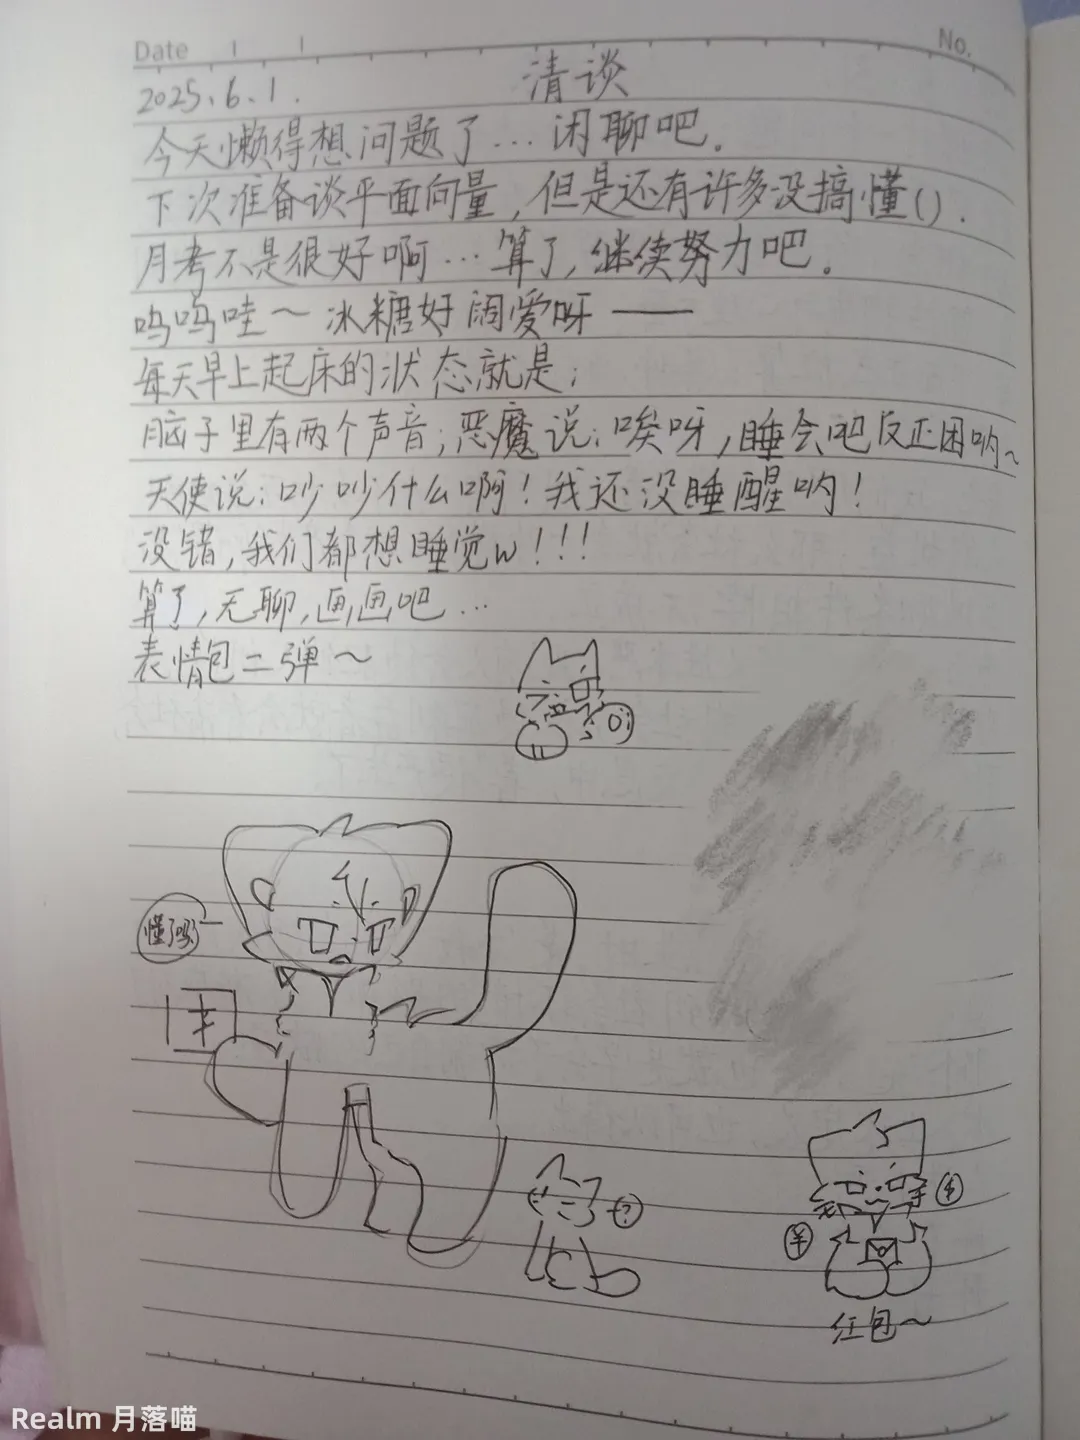 Date
No.
2025.6.1.
清谈
今天懒得想问题了…闲聊吧.
下次准备谈平面向量,但是还有许多没搞懂().
月考不是很好啊…算了,继续努力吧。
呜呜哇~冰糖好阔爱呀——
每天早上起床的状态就是:
脑子里有两个声音;恶魔说:唉呀,睡会吧反正困呐~
天使说:吵吵什么啊!我还没睡醒呐!
没错,我们都想睡觉w!!!
算了,无聊,画画吧…
表情包二弹~
懂了吗
?
¥
红包~
Realm 月落喵